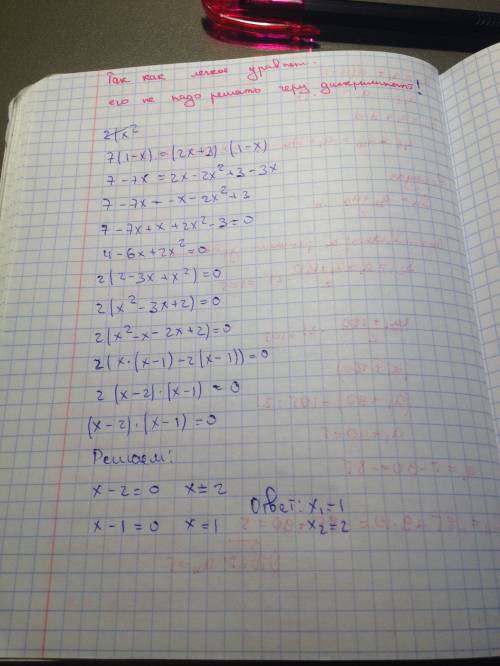 Так как легкое уравнен..
его не надо решать через дискриминант!
7(1-x)=(2x+3)·(1-x)
7-7x=2x-2x²+3-3x
7-7x=-x-2x²+3
7-7x+x+2x²-3=0
4-6x+2x²=0
2(2-3x+x²)=0
2(x²-3x+2)=0
2(x²-x-2x+2)=0
2(x·(x-1)-2(x-1))=0
2(x-2)·(x-1)=0
(x-2)·(x-1)=0
Решаем:
x-2=0 x=2
x-1=0 x=1
Ответ: x₁=1
x₂=2